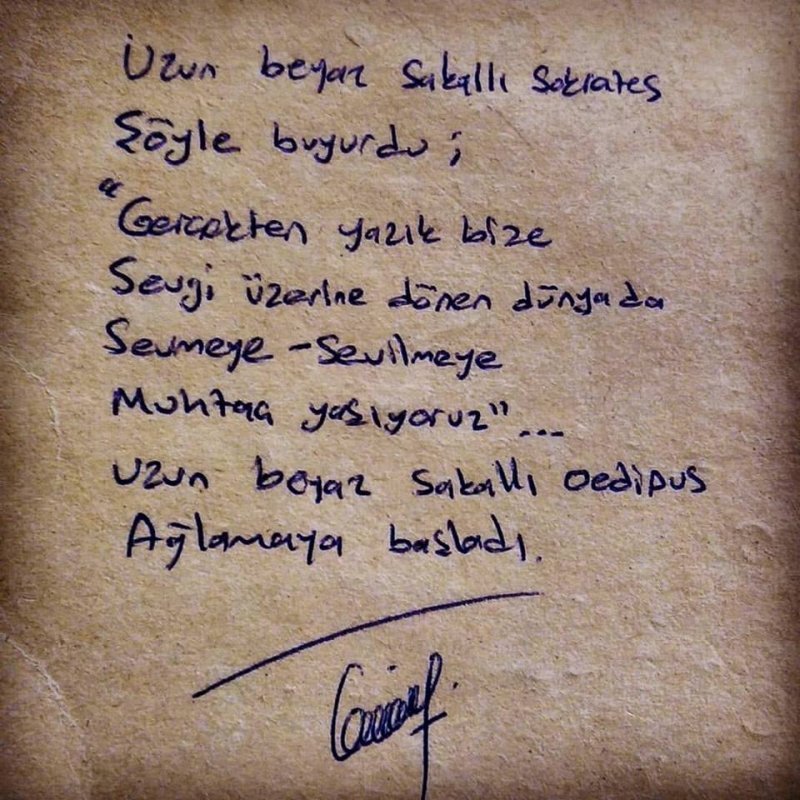 Uzun beyaz sakallı Sokrates
Şöyle buyurdu;
"Gerçekten yazık bize
Sevgi üzerine dönen dünyada
Sevmeye - Sevilmeye
Muhtaç yaşıyoruz"...
Uzun beyaz sakallı Oedipus
Ağlamaya başladı.